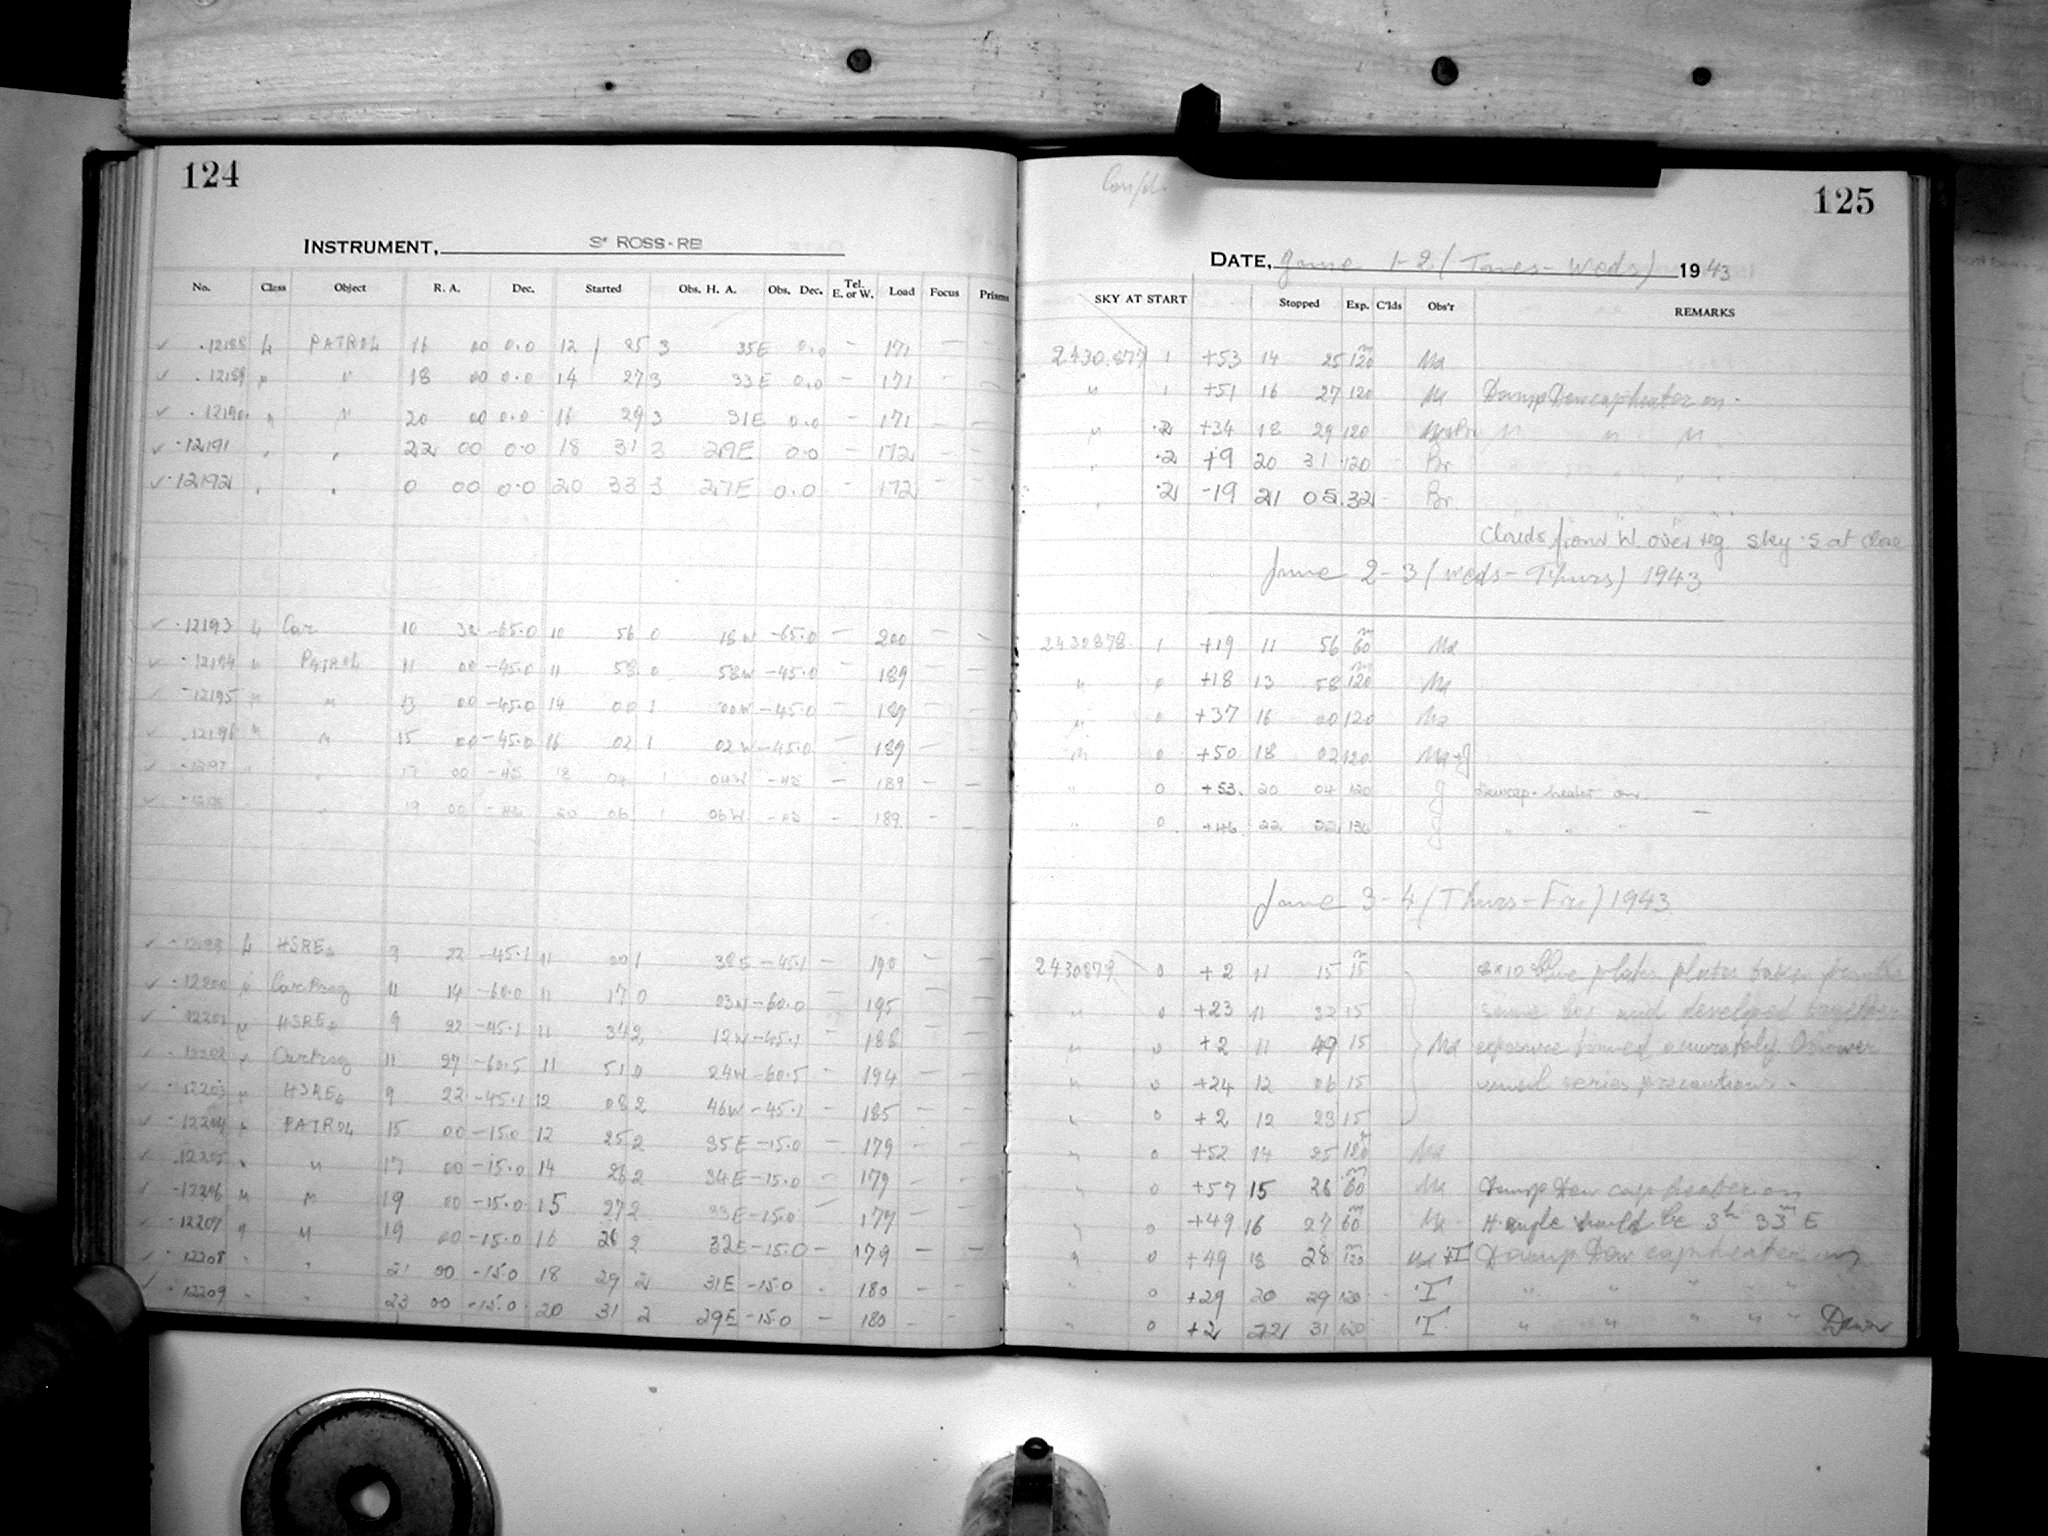 124
INSTRUMENT, 3" ROSS-RB
No. Class Object R. A. Dec. Started Obs. H. A. Obs. Dec. Tel. E. or W. Load Focus Prisms
✓ 12188 L PATROL 16 00 0.0 12 25 3 35E 0.0 – 171 – –
✓ 12189 " " 18 00 0.0 14 27 3 33E 0.0 – 171 – –
✓ 12190 " " 20 00 0.0 16 29 3 31E 0.0 – 171 – –
✓ 12191 " " 22 00 0.0 18 31 3 29E 0.0 – 172 – –
✓ 12192 " " 0 00 0.0 20 33 3 27E 0.0 – 172 – –
✓ 12193 L Car 10 38 -65.0 10 56 0 18W -65.0 – 200 – –
✓ 12194 " PATROL 11 00 -45.0 11 58 0 58W -45.0 – 189 – –
✓ 12195 " " 13 00 -45.0 14 00 1 00W -45.0 – 189 – –
✓ 12196 " " 15 00 -45.0 16 02 1 02W -45.0 – 189 – –
✓ 12197 " " 17 00 -45 18 04 1 04W -45 – 189 – –
✓ 12198 " " 19 00 -45 20 06 1 06W -45 – 189 – –
✓ 12199 L 9 22 -45.1 11 00 1 38E -45.1 – 190 – –
✓ 12200 " Car Prog 11 14 -60.0 11 17 0 03W -60.0 – 195 – –
✓ 12201 " 9 22 -45.1 11 34 2 12W -45.1 – 186 – –
✓ 12202 " Car Prog 11 27 -60.5 11 51 0 24W -60.5 – 194 – –
✓ 12203 " 9 22 -45.1 12 08 2 46W -45.1 – 185 – –
✓ 12204 " PATROL 15 00 -15.0 12 25 2 35E -15.0 – 179 – –
✓ 12205 " " 17 00 -15.0 14 26 2 34E -15.0 – 179 – –
✓ 12206 " " 19 00 -15.0 15 27 2 33E -15.0 – 179 – –
✓ 12207 " " 19 00 -15.0 16 28 2 32E -15.0 – 179 – –
✓ 12208 " " 21 00 -15.0 18 29 2 31E -15.0 – 180 – –
✓ 12209 " " 23 00 -15.0 20 31 2 29E -15.0 – 180 – –
125
DATE, June 1-2 (Tues-Weds) 1943
SKY AT START Stopped Exp. C'lds Obs'r REMARKS
2430.877 1 +53 14 25 120 Ma
" 1 +51 16 27 120 Ma Damp Dewcap heater on.
" .2 +34 18 29 120 " " "
" .2 +9 20 31 120 Br
" .2 -19 21 05 32 Br.
Clouds from W. over reg. sky .5 at close
June 2-3 (Weds-Thurs) 1943
2430878 1 +19 11 56 60 Ma
" 0 +18 13 58 120 Ma
" 0 +37 16 00 120 Ma
" 0 +50 18 02 120 Ma+J
" 0 +53 20 04 120 J Dewcap-heater on.
" 0 +46 22 22 136 J " " "
June 3-4 (Thurs-Fri) 1943
2430879 0 +2 11 15 15 8x10 blue plates plates taken from the
" 0 +23 11 32 15 same box and developed together
" 0 +2 11 49 15 Ma exposure timed accurately
" 0 +24 12 06 15 usual series precautions.
" 0 +2 12 23 15
" 0 +52 14 25 120 Ma
" 0 +57 15 26 60 Ma Damp Dew cap heater on
" 0 +49 16 27 60 Ma H. angle should be 3h 33m E
" 0 +49 18 28 120 Ma+I Damp Dew cap heater on
" 0 +29 20 29 120 I " " " "
" 0 +2 22 31 120 I " " " " Dawn